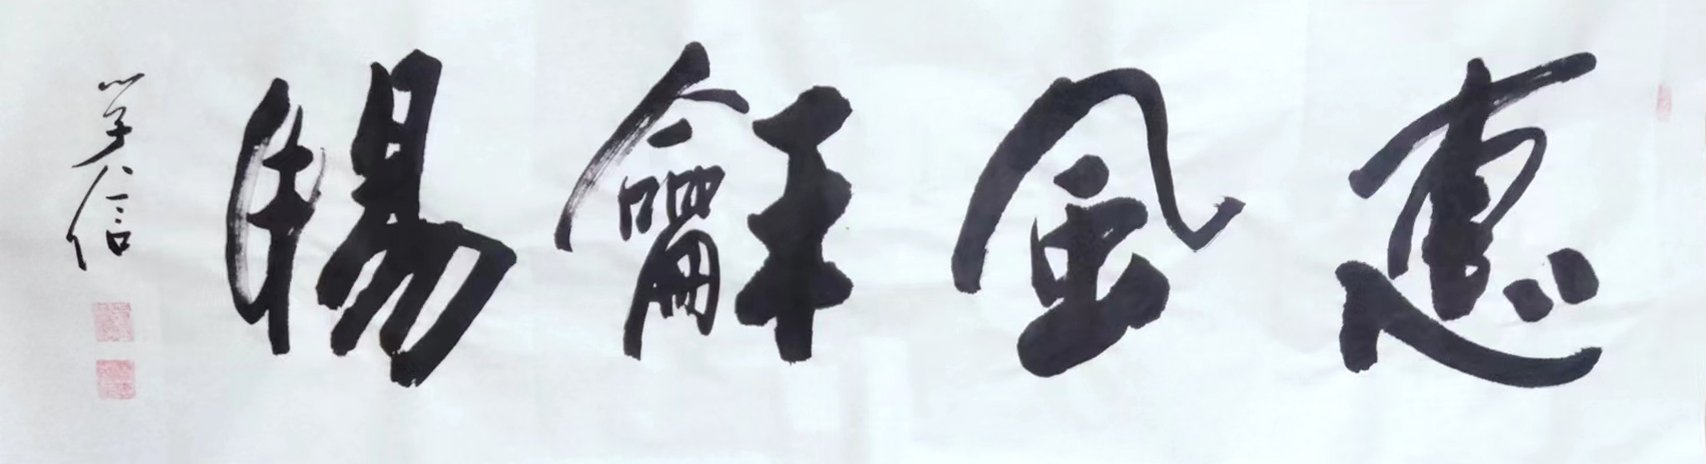 惠風龢暢
学信